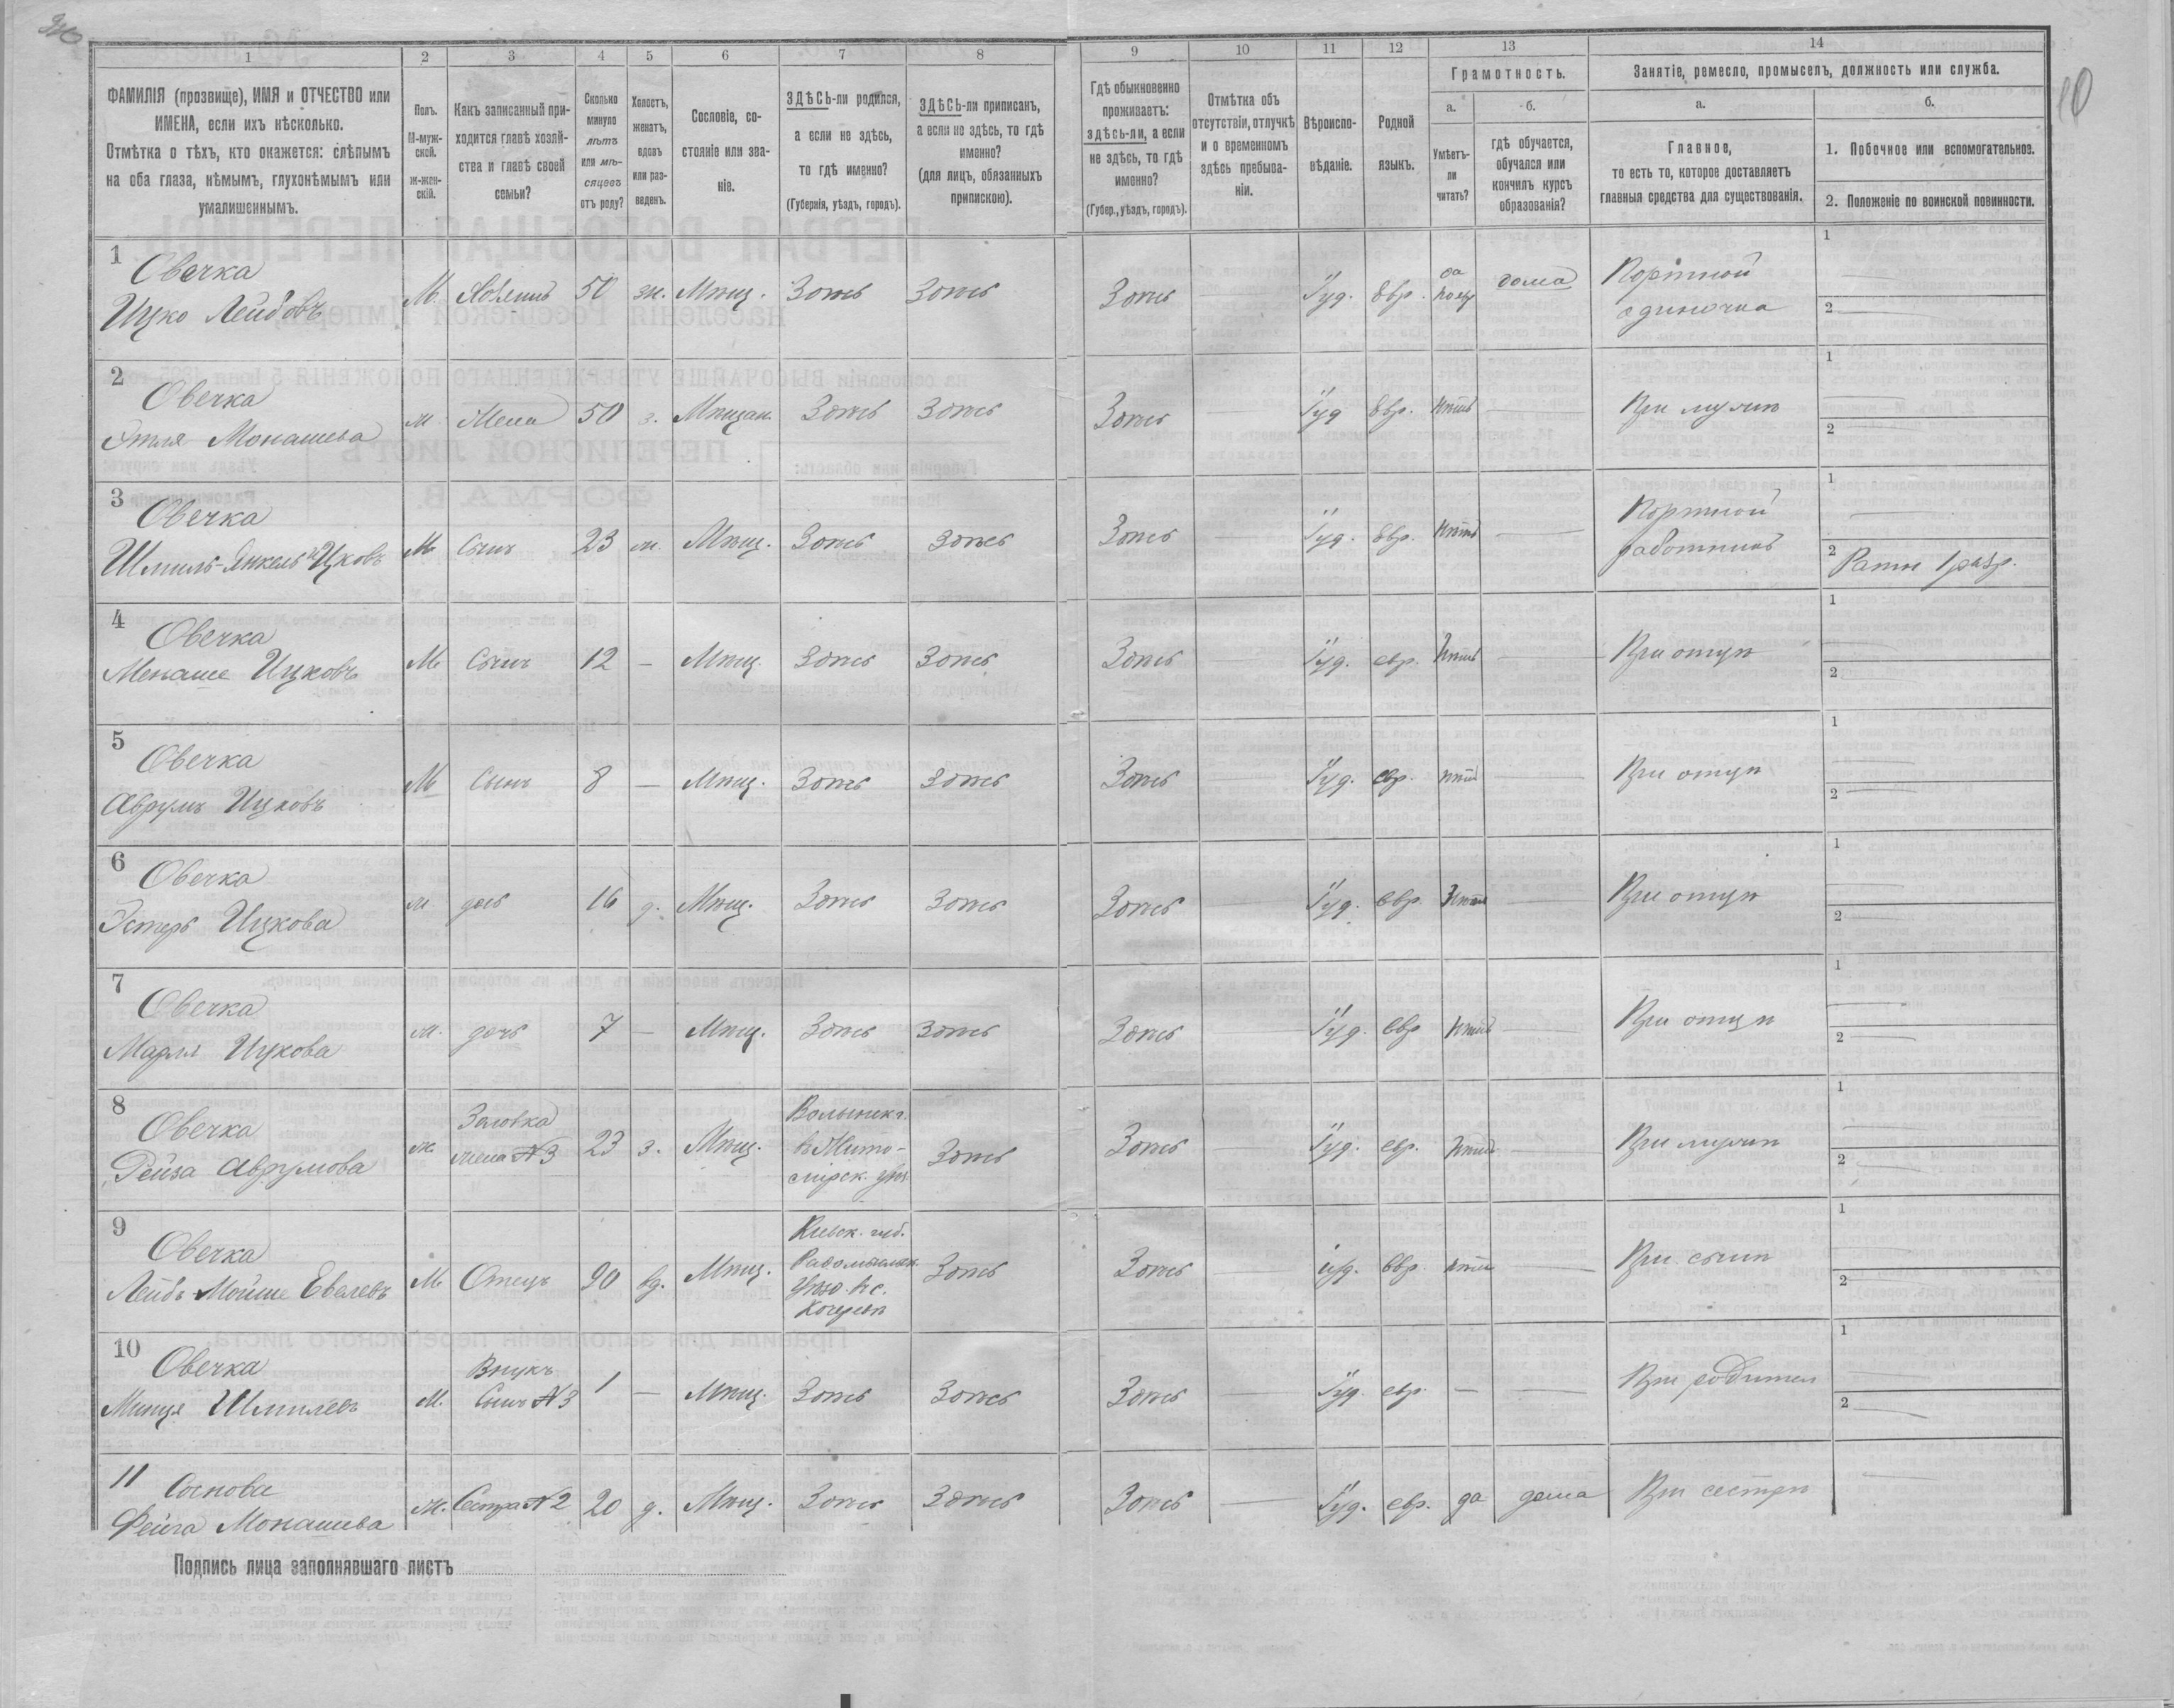 10
1 2 3 4 5 6 7 8 9 10 11 12 13 14
ФАМИЛІЯ (прозвище), ИМЯ и ОТЧЕСТВО или
ИМЕНА, если ихъ нѣсколько.
Отмѣтка о тѣхъ, кто окажется: слѣпымъ
на оба глаза, нѣмымъ, глухонѣмымъ или
умалишеннымъ.
Полъ.
М-муж-
ской.
Ж-жен-
скій.
Какъ записанный при-
ходится главѣ хозяй-
ства и главѣ своей
семьи?
Сколько
минуло
лѣтъ
или мѣ-
сяцевъ
отъ роду?
Холостъ,
женатъ,
вдовъ
или раз-
веденъ.
Сословіе, со-
стояніе или зва-
ніе.
ЗДѢСЬ-ли родился,
а если не здѣсь,
то гдѣ именно?
(Губернія, уѣздъ, городъ).
ЗДѢСЬ-ли приписанъ,
а если не здѣсь, то гдѣ
именно?
(для лицъ, обязанныхъ
припискою).
Гдѣ обыкновенно
проживаетъ:
здѣсь-ли, а если
не здѣсь, то гдѣ
именно?
(Губер., уѣздъ, городъ).
Отмѣтка объ
отсутствіи, отлучкѣ
и о временномъ
здѣсь пребыва-
ніи.
Вѣроиспо-
вѣданіе.
Родной
языкъ.
Грамотность.
а.
Умѣетъ-
ли
читать?
б.
гдѣ обучается,
обучался или
кончилъ курсъ
образованія?
Занятіе, ремесло, промыселъ, должность или служба.
а.
Главное,
то есть то, которое доставляетъ
главныя средства для существованія.
б.
1. Побочное или вспомогательное.
2. Положеніе по воинской повинности.
1 Овечка
Ицко Лейбовъ М. Хозяинъ 50 ж. Мѣщ. Здѣсь Здѣсь Здѣсь — Іуд. Евр. да по евр дома Портной
одиночка 1 — 2 —
2 Овечка
Этля Монашева ж Жена 50 з. Мѣщан. Здѣсь Здѣсь Здѣсь Іуд Евр. Нѣтъ — При мужѣ 1 — 2 —
3 Овечка
Шмиль-Янкель Ицковъ М Сынъ 23 ж. Мѣщ. Здѣсь Здѣсь Здѣсь Іуд. Евр. Нѣтъ — Портной
работникъ 1 — 2 Ратн 1 разр.
4 Овечка
Менаше Ицковъ М Сынъ 12 — Мѣщ. Здѣсь Здѣсь Здѣсь — Іуд. евр. Нѣтъ — При отцѣ 1 — 2 —
5 Овечка
Аврумъ Ицковъ М Сынъ 8 — Мѣщ. Здѣсь Здѣсь Здѣсь — Іуд. евр. нѣтъ — При отцѣ 1 — 2 —
6 Овечка
Эстеръ Ицкова ж дочь 16 д. Мѣщ. Здѣсь Здѣсь Здѣсь — Іуд. евр. Нѣтъ — При отцѣ 1 — 2 —
7 Овечка
Марья Ицкова ж. дочь 7 — Мѣщ. Здѣсь Здѣсь Здѣсь — Іуд. Евр Нѣтъ — При отцѣ 1 — 2 —
8 Овечка
Рейза Аврумова ж. Золовка
жена №3 23 з. Мѣщ. Волынск г.
в Жито-
мірск. уѣз. Здѣсь Здѣсь — Іуд. евр. Нѣтъ — При мужѣ 1 — 2 —
9 Овечка
Лейбъ-Мойше Евелевъ М Отецъ 90 вд. Мѣщ. Кіевск. губ.
Радомысльск.
уѣзд. в с. Здѣсь Здѣсь — іуд. Евр. нѣтъ — При сынѣ 1 — 2 —
10 Овечка
Шмилевъ М. Внукъ
Сынъ №3 1 — Мѣщ. Здѣсь Здѣсь Здѣсь — Іуд. евр. — — При родител 1 — 2 —
11
Фейга Монашева ж. Сестра №2 20 д. Мѣщ. Здѣсь Здѣсь Здѣсь — Іуд. евр. да дома При сестрѣ —
Подпись лица заполнявшаго листъ